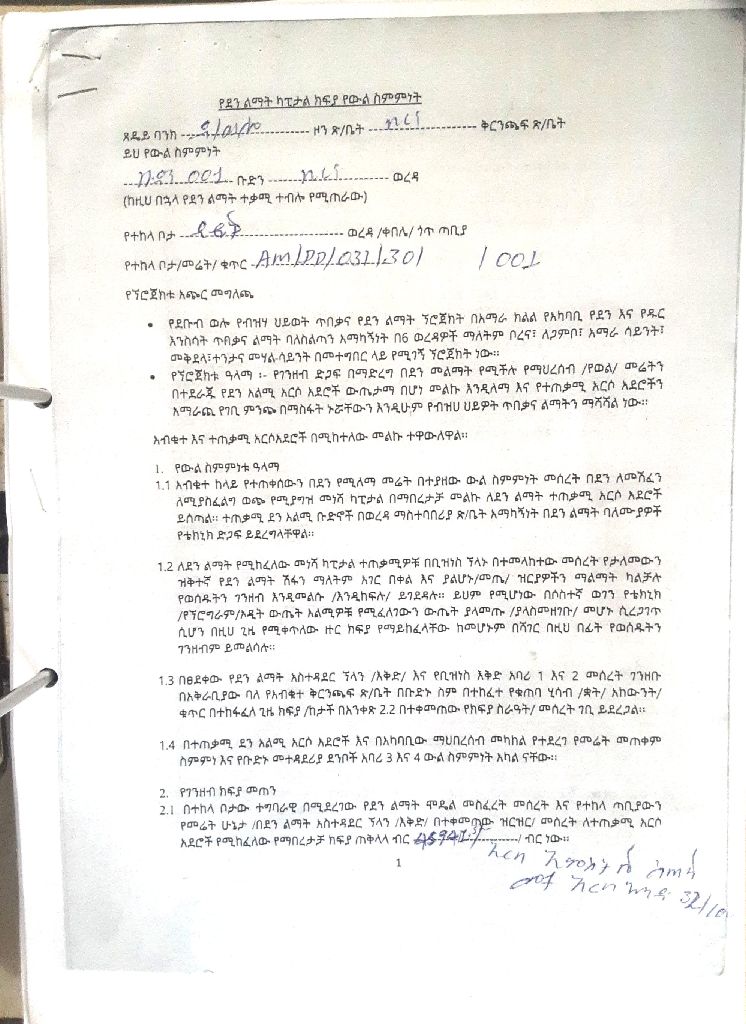 የደን ልማት ካፒታል ክፍያ የውል ስምምነት
ጸዴይ ባንክ ---------------- ዞን ጽ/ቤት ---------------- ቅርንጫፍ ጽ/ቤት
ይህ የውል ስምምነት
001 ቡድን ---------------- ወረዳ
(ከዚህ በኋላ የደን ልማት ተቃሚ ተብሎ የሚጠራው)
የተከላ ቦታ ---------------- ወረዳ /ቀበሌ/ ጎጥ ጣቢያ
የተከላ ቦታ/መሬት/ ቁጥር AM/DD/032/30/ /001
የኘሮጀክቱ አጭር መግለጫ
• የደቡብ ወሎ የብዝሃ ህይወት ጥበቃና የደን ልማት ኘሮጀክት በአማራ ክልል የአካባቢ የደን እና የዱር
እንስሳት ጥበቃና ልማት ባለስልጣን አማካኝነት በ6 ወረዳዎች ማለትም ቦረና፣ ለጋምቦ፣ አማራ ሳይንት፣
መቅደላ፣ተንታና መሃል-ሳይንት በመተግበር ላይ የሚገኝ ኘሮጀክት ነው።
• የኘሮጀክቱ ዓላማ ፡- የገንዘብ ድጋፍ በማድረግ በደን መልማት የሚችሉ የማህረሰብ /የወል/ መሬትን
በተደራጁ የደን አልሚ አርሶ አደሮች ውጤታማ በሆነ መልኩ እንዲለማ እና የተጠቃሚ አርሶ አደሮችን
አማራጪ የገቢ ምንጭ በማስፋት ኑሯቸውን እንዲሁም የብዝሀ ህይዎት ጥበቃና ልማትን ማሻሻል ነው።
አብቁተ እና ተጠቃሚ አርሶአደሮች በሚከተለው መልኩ ተዋውለዋል።
1. የውል ስምምነቱ ዓላማ
1.1 አብቁተ ከላይ የተጠቀሰውን በደን የሚለማ መሬት በተያዘው ውል ስምምነት መሰረት በደን ለመሸፈን
ለሚያስፈልግ ወጭ የሚያግዝ መነሻ ካፒታል በማበረታቻ መልኩ ለደን ልማት ተጠቃሚ አርሶ አደሮች
ይሰጣል። ተጠቃሚ ደን አልሚ ቡድኖች በወረዳ ማስተባበሪያ ጽ/ቤት አማካኝነት በደን ልማት ባለሙያዎች
የቴክኒክ ድጋፍ ይደረግላቸዋል።
1.2 ለደን ልማት የሚከፈለው መነሻ ካፒታል ተጠቃሚዎቹ በቢዝነስ ኘላኑ በተመላከተው መሰረት የታለመውን
ዝቅተኛ የደን ልማት ሽፋን ማለትም አገር በቀል እና ያልሆኑ/መጤ/ ዝርያዎችን ማልማት ካልቻሉ
የወሰዱትን ገንዘብ እንዲመልሱ /እንዲከፍሉ/ ይገደዳሉ። ይህም የሚሆነው በሶስተኛ ወገን የቴክኒክ
/የኘሮግራም/አዲት ውጤት አልሚዎቹ የሚፈለገውን ውጤት ያላመጡ /ያላስመዘገቡ/ መሆኑ ሲረጋገጥ
ሲሆን በዚህ ጊዜ የሚቀጥለው ዙር ክፍያ የማይከፈላቸው ከመሆኑም በሻገር በዚህ በፊት የወሰዱትን
ገንዘብም ይመልሳሉ።
1.3 በፀደቀው የደን ልማት አስተዳደር ኘላን /እቅድ/ እና የቢዝነስ እቅድ አባሪ 1 እና 2 መሰረት ገንዘቡ
በአቅራቢያው ባለ የአብቁተ ቅርንጫፍ ጽ/ቤት በቡድኑ ስም በተከፈተ የቁጠባ ሂሳብ /ቋት/ አከውንት/
ቁጥር በተከፋፈለ ጊዜ ክፍያ /ከታች በአንቀጽ 2.2 በተቀመጠው የክፍያ ስራዓት/ መሰረት ገቢ ይደረጋል።
1.4 በተጠቃሚ ደን አልሚ አርሶ አደሮች እና በአካባቢው ማህበረሰብ መካከል የተደረገ የመሬት መጠቀም
ስምምነ እና የቡድኑ መተዳደሪያ ደንቦች አባሪ 3 እና 4 ውል ስምምነት አካል ናቸው።
2. የገንዘብ ክፍያ መጠን
2.1 በተከላ ቦታው ተግባራዊ በሚደረገው የደን ልማት ሞዴል መስፈረት መሰረት እና የተከላ ጣቢያውን
የመሬት ሁኔታ /በደን ልማት አስተዳደር ኘላን /እቅድ/ በተቀመጠው ዝርዝር/ መሰረት ለተጠቃሚ አርሶ
አደሮች የሚከፈለው የማበረታቻ ክፍያ ጠቅላላ ብር ----------------/ ብር ነው።
1